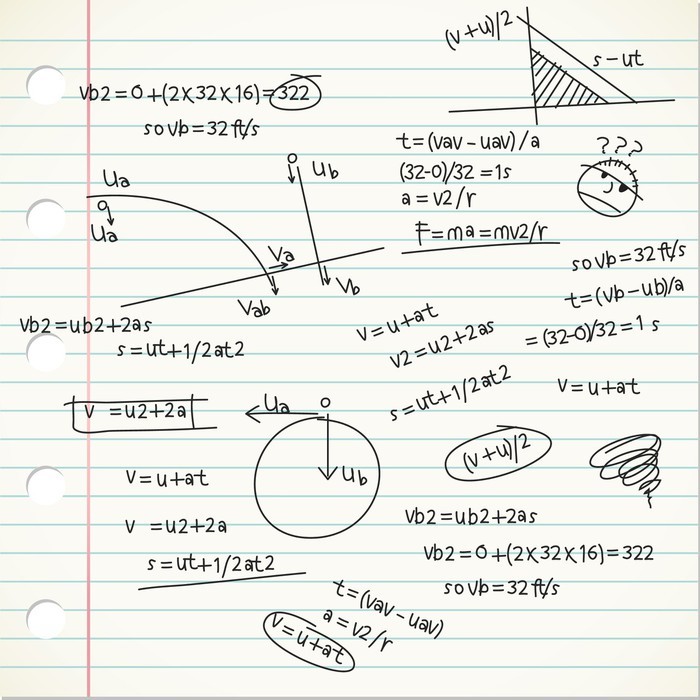 (v+u)/2
s-ut
vb2=0+(2x32x16)=322
so vb=32 ft/s
t=(vav-uav)/a
(32-0)/32=1s
a=v2/r
F=ma=mv2/r
???
ua
ua
ub
va
vab
vb
so vb=32 ft/s
t=(vb-ub)/a
=(32-0)/32=1 s
v=u+at
vb2=ub2+2as
s=ut+1/2at2
v=u+at
v2=u2+2as
s=ut+1/2at2
v =u2+2a
ua
o
ub
(v+u)/2
v=u+at
v =u2+2a
s=ut+1/2at2
vb2=ub2+2as
vb2=0+(2x32x16)=322
so vb=32 ft/s
t=(vav-uav)
a=v2/r
v=u+at